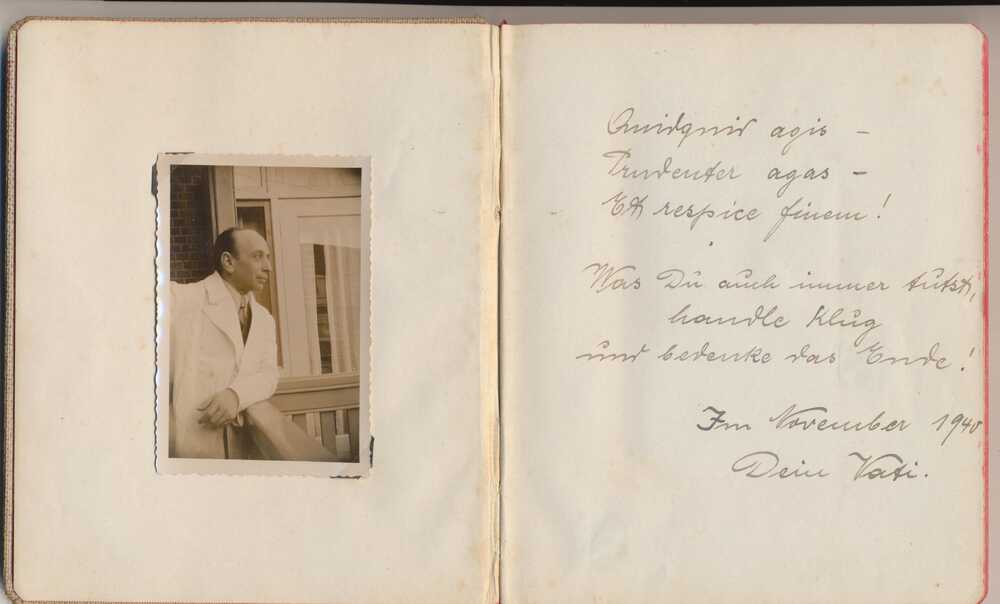 Quidquid agis –
Prudenter agas –
Et respice finem!
Was Du auch immer tutst,
handle klug
und bedenke das Ende!
Im November 1940
Dein Vati.